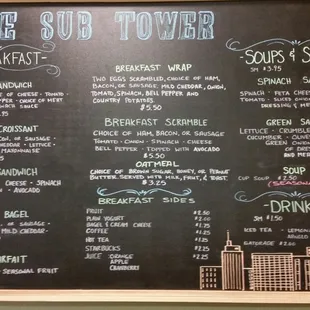 E SUB TOWER
AKFAST-
NDWICH
OF CHEESE · TOMATO
PER · CHOICE OF MEAT
CROISSANT
CHOICE OF BACON, OR
SAUSAGE · CHEDDAR
LETTUCE
MAYONNAISE
SANDWICH
CHEESE · SPINACH
AVOCADO
BAGEL
OR SAUSAGE
MILD CHEDDAR
RFAIT
SEASONAL FRUIT
BREAKFAST WRAP
TWO EGGS SCRAMBLED, CHOICE OF HAM,
BACON, OR SAUSAGE, MILD CHEDDAR, ONION,
TOMATO, SPINACH, BELL PEPPER AND
COUNTRY POTATOES
$5.50
BREAKFAST SCRAMBLE
CHOICE OF HAM, BACON, OR SAUSAGE
TOMATO · ONION · SPINACH · CHEESE
BELL PEPPER · TOPPED WITH AVOCADO
$5.50
OATMEAL
CHOICE OF BROWN SUGAR, HONEY, OR PEANUT
BUTTER. SERVED WITH MILK, FRUIT, & TOAST
$3.25
BREAKFAST SIDES
FRUIT $2.50
PLAIN YOGURT $2.50
BAGEL & CREAM CHEESE $1.25
COFFEE $1.25
HOT TEA $1.25
STARBUCKS
JUICE ORANGE
APPLE
CRANBERRY
SOUPS & S
SM $3.75
SPINACH SA
SPINACH · FETA CHEES
TOMATO · SLICED ONIO
DRESSING & ME
GREEN SA
LETTUCE · CRUMBLE
CUCUMBER · OL
OF DRE
AND MEA
SOUP
CUP SOUP $2.50
(SEASONA
-DRINK
SM $2.50
ICED TEA · LEMONA
ARNOLD
GATORADE $2.00